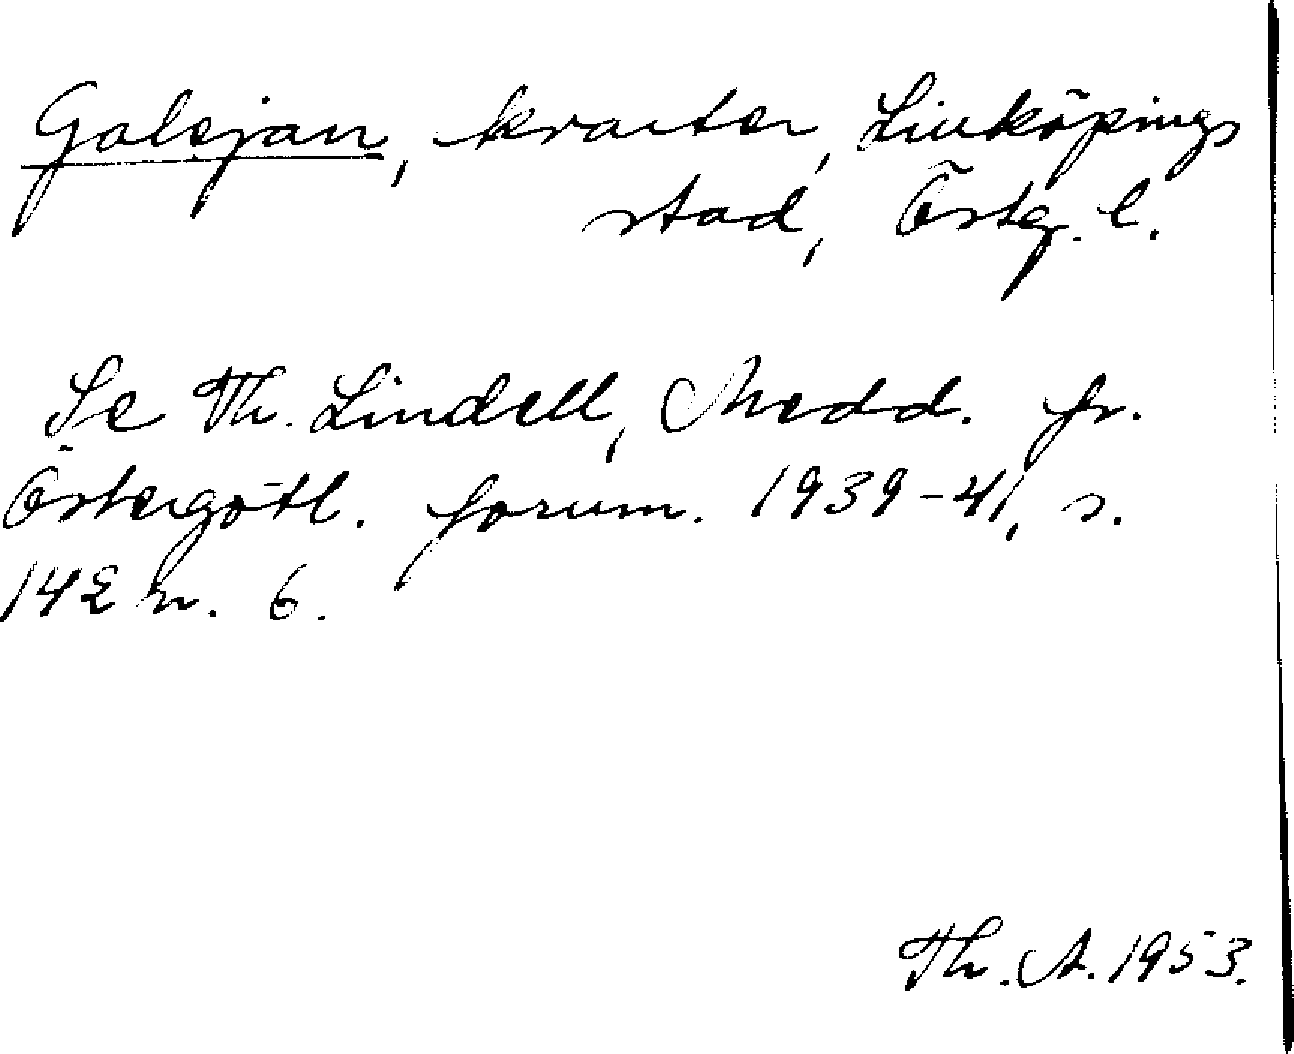 Galejan, kvarter, Linköpings
stad, Östg. l.
Se Th. Lindell, Medd. fr.
Östergötl. fornm. 1939-41, s.
142 n. 6.
Th. A. 1953.